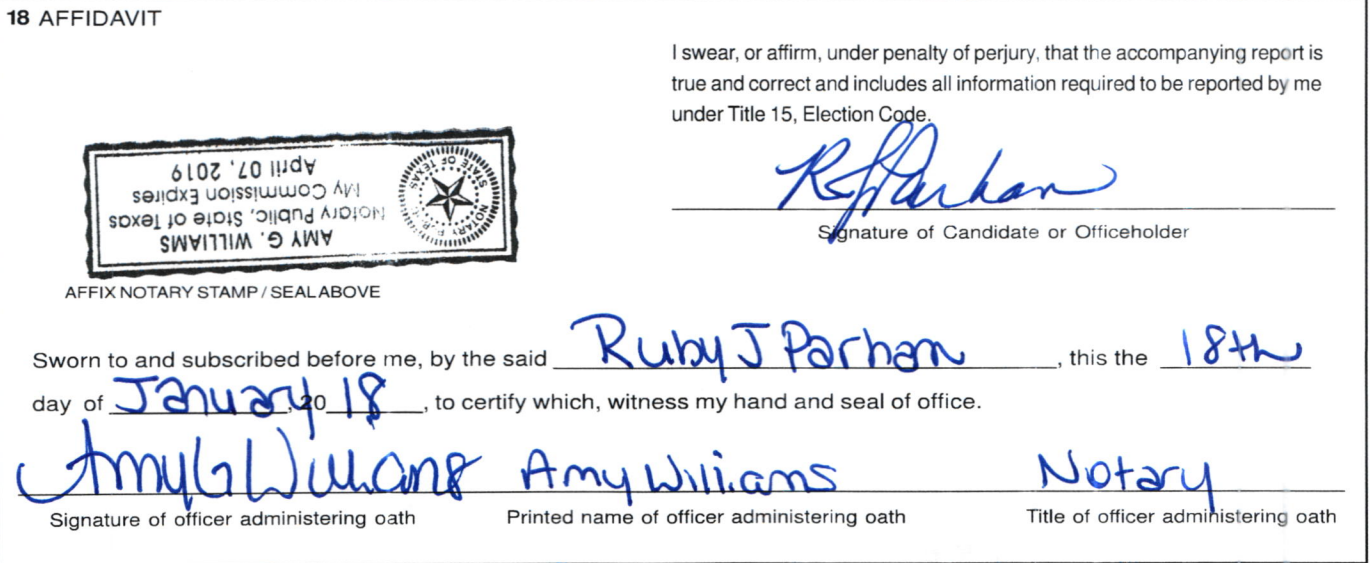 18 AFFIDAVIT
I swear, or affirm, under penalty of perjury, that the accompanying report is
true and correct and includes all information required to be reported by me
under Title 15, Election Code.
AMY G. WILLIAMS
Notary Public, State of Texas
My Commission Expires
April 07, 2019
STATE OF TEXAS
NOTARY
R J Parham
Signature of Candidate or Officeholder
AFFIX NOTARY STAMP / SEAL ABOVE
Sworn to and subscribed before me, by the said Ruby J Parham, this the 18th
day of January, 20 18, to certify which, witness my hand and seal of office.
Amy G Williams Amy Williams Notary
Signature of officer administering oath Printed name of officer administering oath Title of officer administering oath